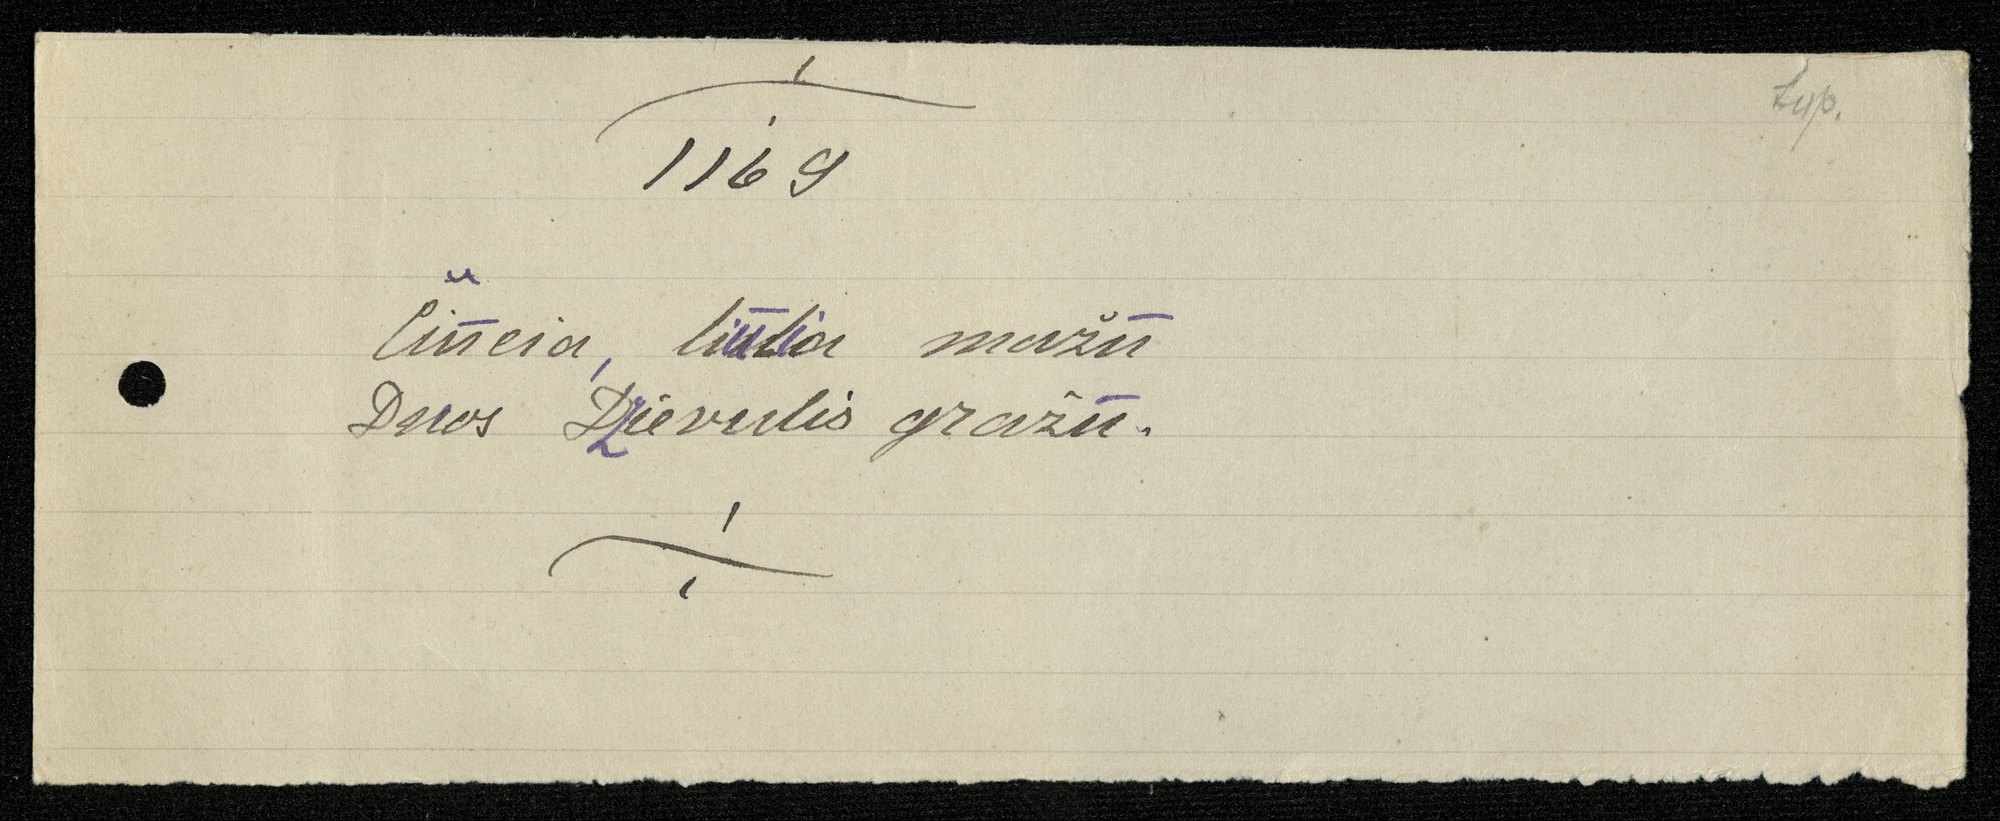 Lup.
1169
Čiūcia, liūlia mažū
Duos Dzievulis gražū.